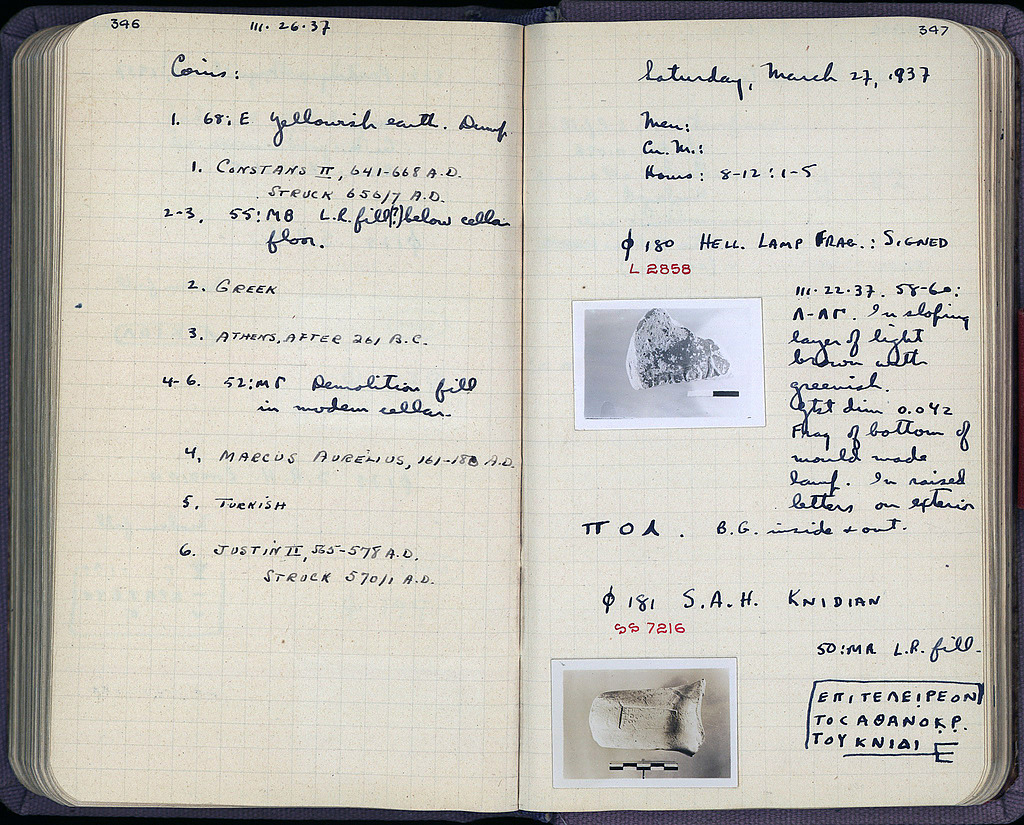 346
III·26·37
Coins:
1. 68:E Yellowish earth. Dump
1. CONSTANS II, 641-668 A.D.
STRUCK 656/7 A.D.
2-3. 55:MB L.R. fill(?) below cellar
floor.
2. GREEK
3. ATHENS, AFTER 261 B.C.
4-6. 52:ΜΓ Demolition fill
in modern cellar.
4. MARCUS AURELIUS, 161-180 A.D.
5. TURKISH
6. JUSTIN II, 565-578 A.D.
STRUCK 570/1 A.D.
347
Saturday, March 27, 1937
Men:
Cu. M.:
Hours: 8-12 : 1-5
φ 180 HELL. LAMP FRAG.: SIGNED
L 2858
III·22·37. 58-60:
Λ-ΛΓ. In sloping
layer of light
brown with
greenish.
gtst dim 0.042
Frag of bottom of
mould made
lamp. In raised
letters on exterior
ΠΟΛ. B.G. inside & out.
φ 181 S.A.H. KNIDIAN
SS 7216
50:MA L.R. fill.
ΕΠΙΤΕΛΕΙΡΕΟΝ
ΤΟC ΑΘΑΝΟΚΡ.
ΤΟΥ ΚΝΙΔΙ Ε